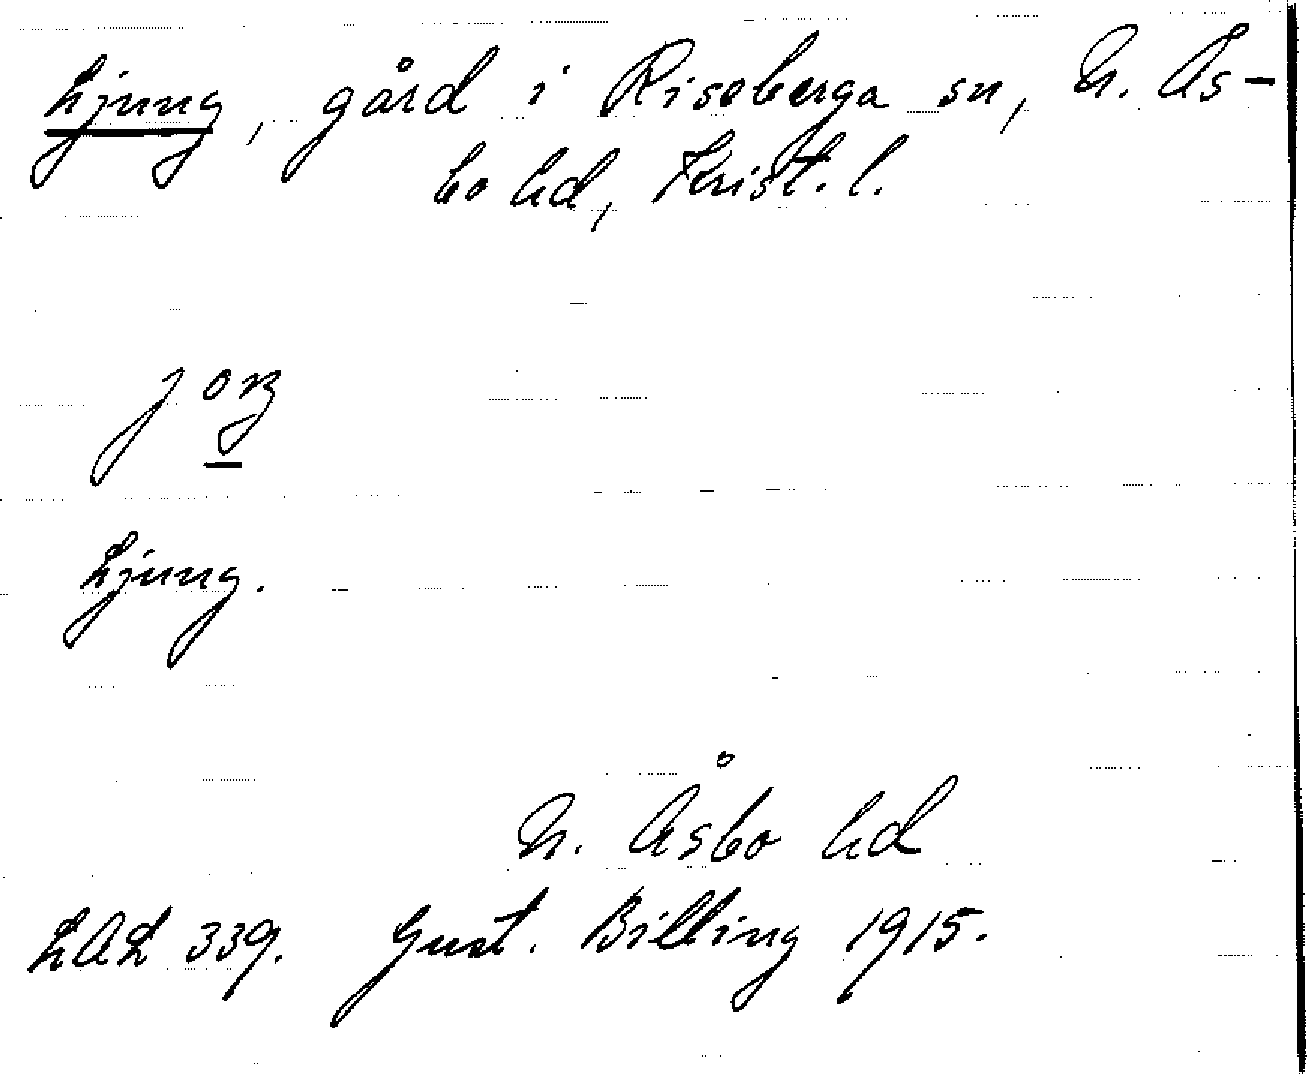 Ljung, gård i Riseberga sn, N. Ås-
bo hd, Krist. l.
joŋ
Ljung.
N. Åsbo hd
LAL 339. Gust. Billing 1915.